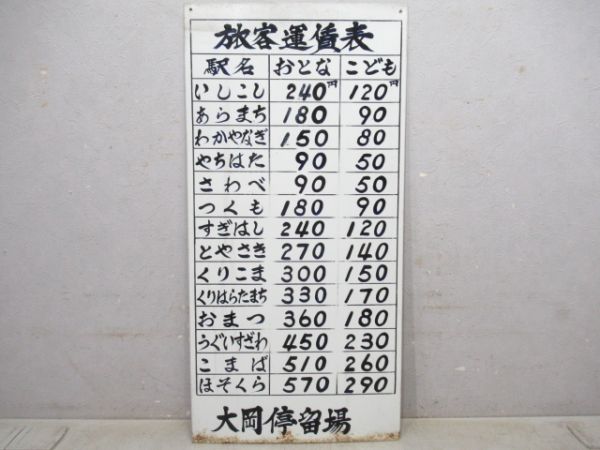 旅客運賃表
駅名 おとな こども
いしこし 240円 120円
あらまち 180 90
わかやなぎ 150 80
やちはた 90 50
さわべ 90 50
つくも 180 90
すぎはし 240 120
とやさき 270 140
くりこま 300 150
くりはらたまち 330 170
おまつ 360 180
うぐいすざわ 450 230
こまば 510 260
ほそくら 570 290
大岡停留場